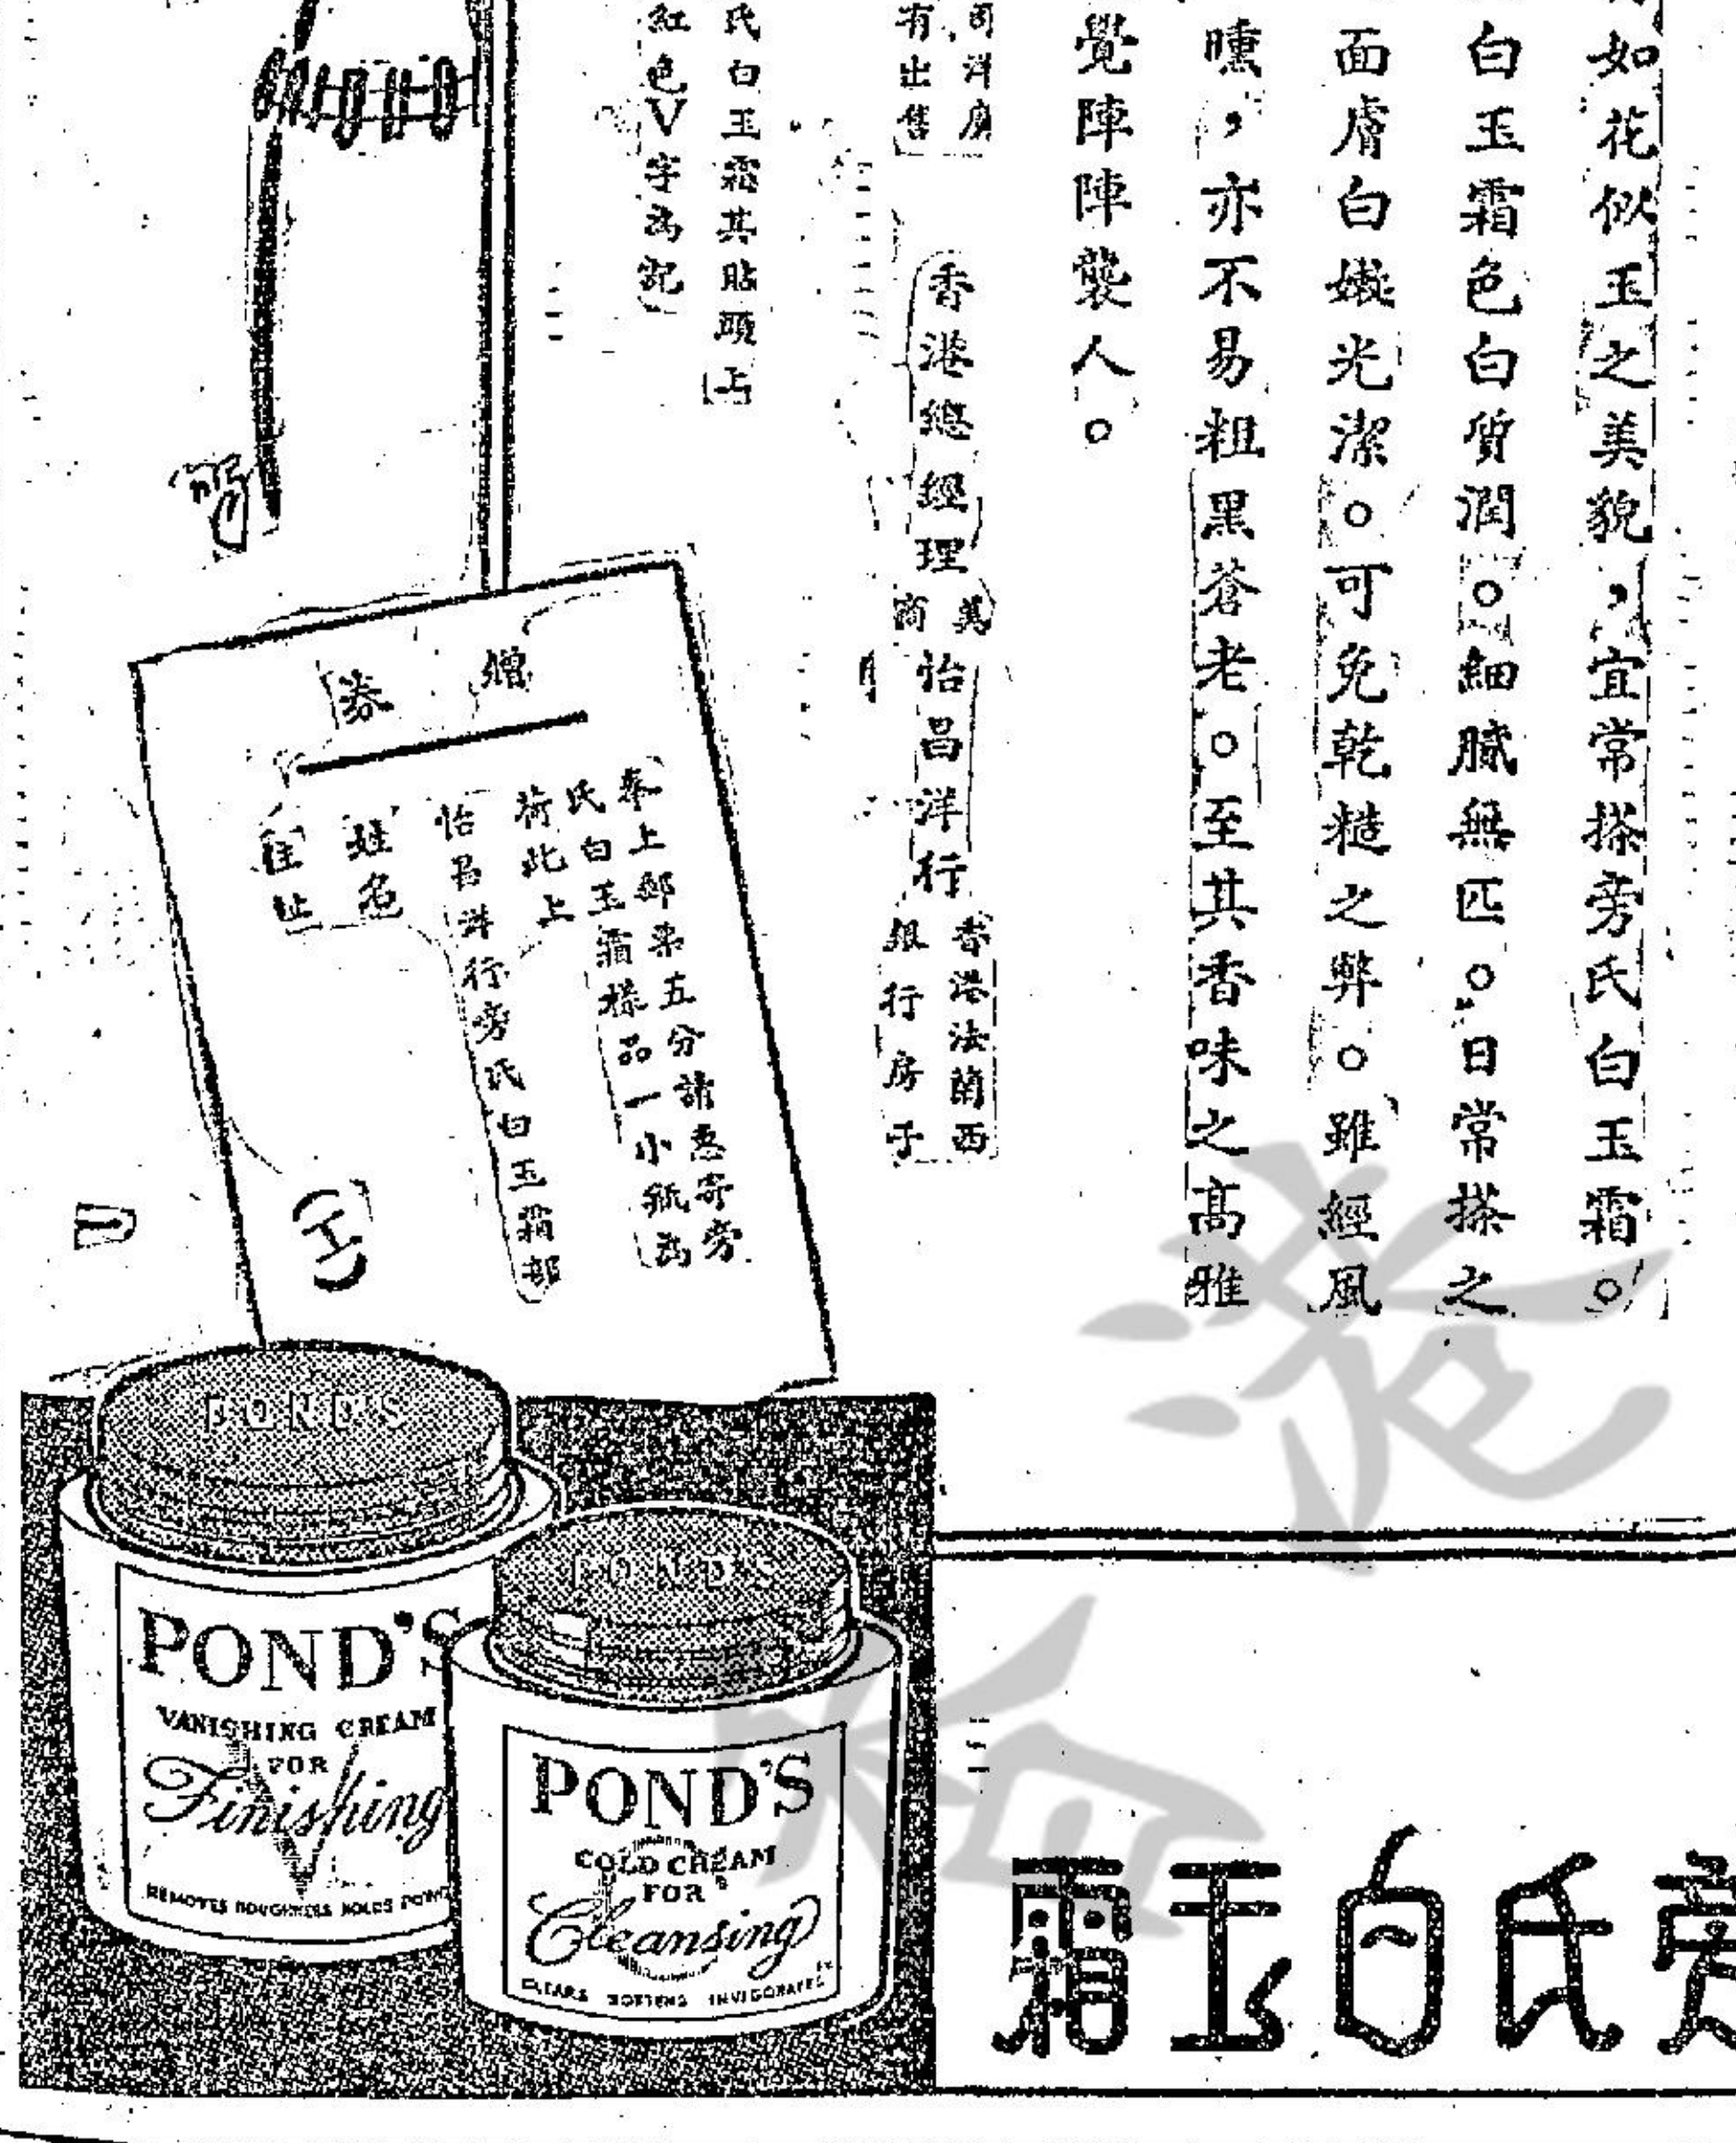 如花似玉之美貌，宜常搽旁氏白玉霜。
白玉霜色白質潤。細膩無匹。日常搽之
面膚白嫩光潔。可免乾糙之弊。雖經風
曛，亦不易粗黑蒼老。至其香味之高雅
覺陣陣襲人。
司洋房
有出售
香港總經理
美商
怡昌洋行
香港法蘭西
銀行房子
氏白玉霜其貼頭上
紅色V字為記
贈券
奉上郵票五分請惠寄旁
氏白玉霜樣品一小瓶為
荷此上
怡昌洋行旁氏白玉霜部
姓名
住址
(工)
POND'S
POND'S
VANISHING CREAM
FOR
Finishing
REMOVES ROUGHNESS HOLDS POWD
POND'S
POND'S
COLD CREAM
FOR
Cleansing
CLEARS SOFTENS INVIGORATES
旁氏白玉霜